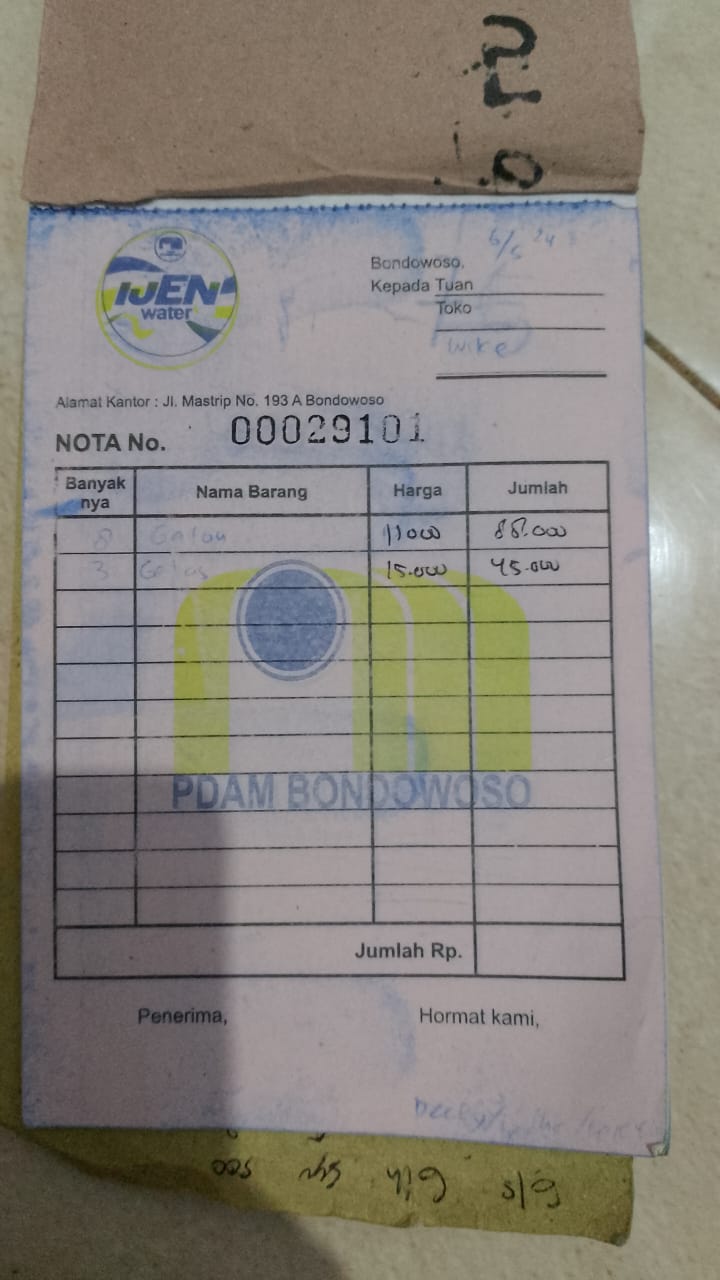 IJEN
water
6/5 24
Bondowoso,
Kepada Tuan
Toko
Wike
Alamat Kantor : Jl. Mastrip No. 193 A Bondowoso
NOTA No. 00029101
Banyak nya Nama Barang Harga Jumlah
8 Galon 11000 88.000
3 Gelas 15.000 45.000
PDAM BONDOWOSO
Jumlah Rp.
Penerima, Hormat kami,